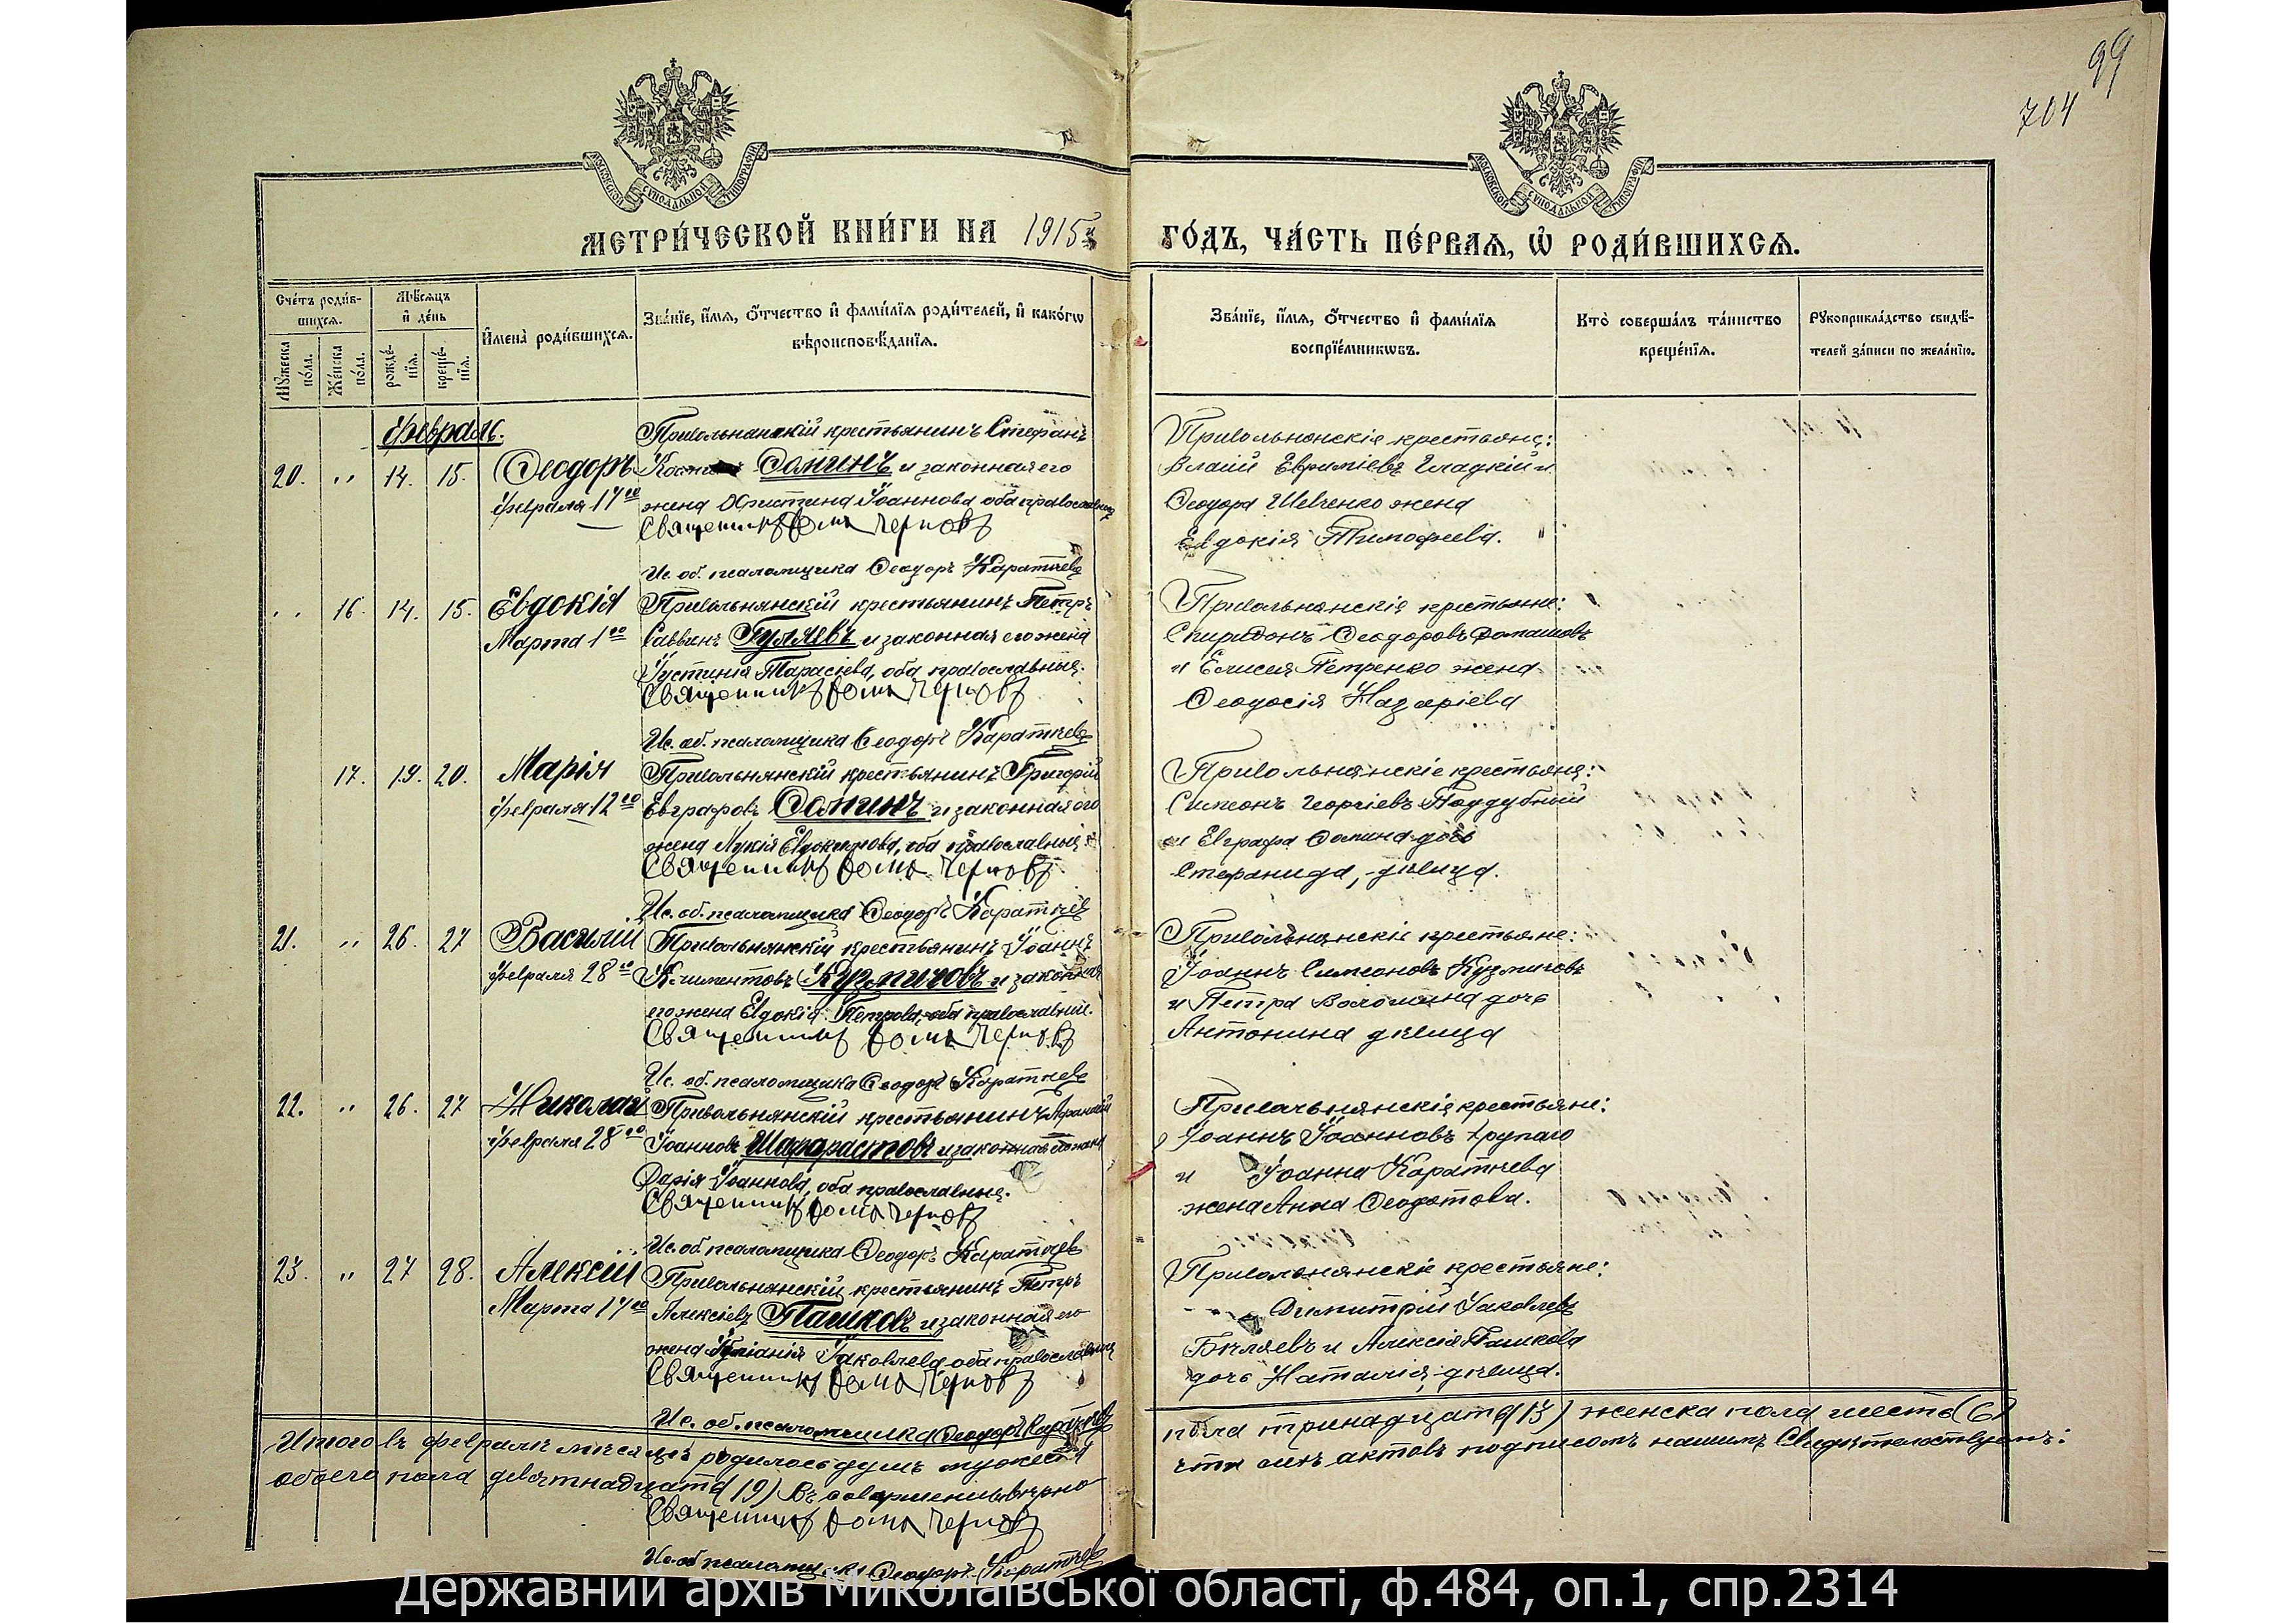 99
704
МОСКОВСКОЙ СѴНОДАЛЬНОЙ ТИПОГРАФІИ
МОСКОВСКОЙ СѴНОДАЛЬНОЙ ТИПОГРАФІИ
МЕТРИ́ЧЕСКОЙ КНИ́ГИ НА 1915й ГО́ДЪ, ЧА́СТЬ ПЕ́РВАѦ, Ѡ҆ РОДИ́ВШИХСѦ.
Сче́тъ роди́в-
шихсѧ.
Мѣ́сѧцъ
и҆ де́нь
Мꙋ́жеска по́ла.
Же́нска по́ла.
рожде́-
нїѧ.
креще́-
нїѧ.
И҆мена̀ роди́вшихсѧ.
Зва́нїе, и҆́мѧ, о҆́тчество и҆ фами́лїѧ роди́телей, и҆ како́гѡ
вѣроисповѣ́данїѧ.
Зва́нїе, и҆́мѧ, о҆́тчество и҆ фами́лїѧ
воспрїе́мникѡвъ.
Кто̀ соверша́лъ та́инство
креще́нїѧ.
Рꙋкоприкла́дство свидѣ́-
телей за́писи по жела́нїю.
Февраль.
20. " 14. 15. Ѳеодоръ
Февраля 17го
Привольнянскій крестьянинъ Стефанъ
Соминъ и законная его
жена Христина Іоаннова оба православные
Священникъ Ѳома Черновъ
Ис. об. псаломщика Ѳеодоръ Каратѣевъ
Привольнянскіе крестьяне:
Власій Евѳиміевъ Гладкій и
Ѳеодора Шевченко жена
Евдокія Тимоѳеева.
" 16. 14. 15. Евдокія
Марта 1го
Привольнянскій крестьянинъ Петръ
Саввинъ Гуляевъ и законная его жена
Іустинія Тарасіева, оба православные.
Священникъ Ѳома Черновъ
Ис. об. псаломщика Ѳеодоръ Каратѣевъ
Привольнянскіе крестьяне:
Спиридонъ Ѳеодоровъ Ромашовъ
и Елисея Петренко жена
Ѳеодосія Назаріева
17. 19. 20. Марія
Февраля 12го
Привольнянскій крестьянинъ Григорій
Евграфовъ Соминъ и законная его
жена Лукія Евдокимова, оба православные
Священникъ Ѳома Черновъ
Ис. об. псаломщика Ѳеодоръ Каратѣевъ
Привольнянскіе крестьяне:
Симеонъ Георгіевъ Поддубный
и Евграфа Сомина дочь
Стефанида, дѣвица.
21. " 26. 27 Василій
Февраля 28го
Привольнянскій крестьянинъ Іоаннъ
Климентовъ Кузмичовъ и законная
его жена Евдокія Петрова, оба православные.
Священникъ Ѳома Черновъ
Ис. об. псаломщика Ѳеодоръ Каратѣевъ
Привольнянскіе крестьяне:
Іоаннъ Симеоновъ Кузмичовъ
и Петра Воломина дочь
Антонина дѣвица
22. " 26. 27 Николай
Февраля 28го
Привольнянскій крестьянинъ Аѳанасій
Іоанновъ Шарарастовъ и законная его жена
Дарія Іоаннова, оба православные.
Священникъ Ѳома Черновъ
Ис. об. псаломщика Ѳеодоръ Каратѣевъ
Привольнянскіе крестьяне:
Іоаннъ Іоанновъ
и Іоанна Каратѣева
жена Анна Ѳеодотова.
23. " 27 28. Алексій
Марта 17го
Привольнянскій крестьянинъ Петръ
Алексіевъ Пашковъ и законная его
жена Іуліанія Іаковлева оба православные
Священникъ Ѳома Черновъ
Ис. об. псаломщика Ѳеодоръ Каратѣевъ
Привольнянскіе крестьяне:
Димитрій Іаковлевъ
Бѣляевъ и Алексія Пашкова
дочь Наталія дѣвица.
Итого въ февралѣ мѣсяцѣ родилось душъ мужеска пола тринадцать (13) женска пола шесть (6)
обоего пола девятнадцать (19) Въ вѣрно что актовъ подписомъ нашимъ Свидѣтельствуемъ:
Священникъ Ѳома Черновъ
Ис. об. псаломщика Ѳеодоръ Каратѣевъ
Державний архів Миколаївської області, ф.484, оп.1, спр.2314